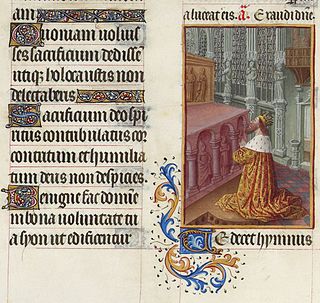 am
Quoniam voluis
ses sacrificium dedisse
utiq; holocaustis non
delectaberis
Sacrificium deo spi
ritus contribulatus cor
contritum et humilia
tum deus non despicies
Benigne fac domine
in bona voluntate tu
a syon ut edificentur
a luceat eis. a. Exaudi dne.
Te decet hymnus